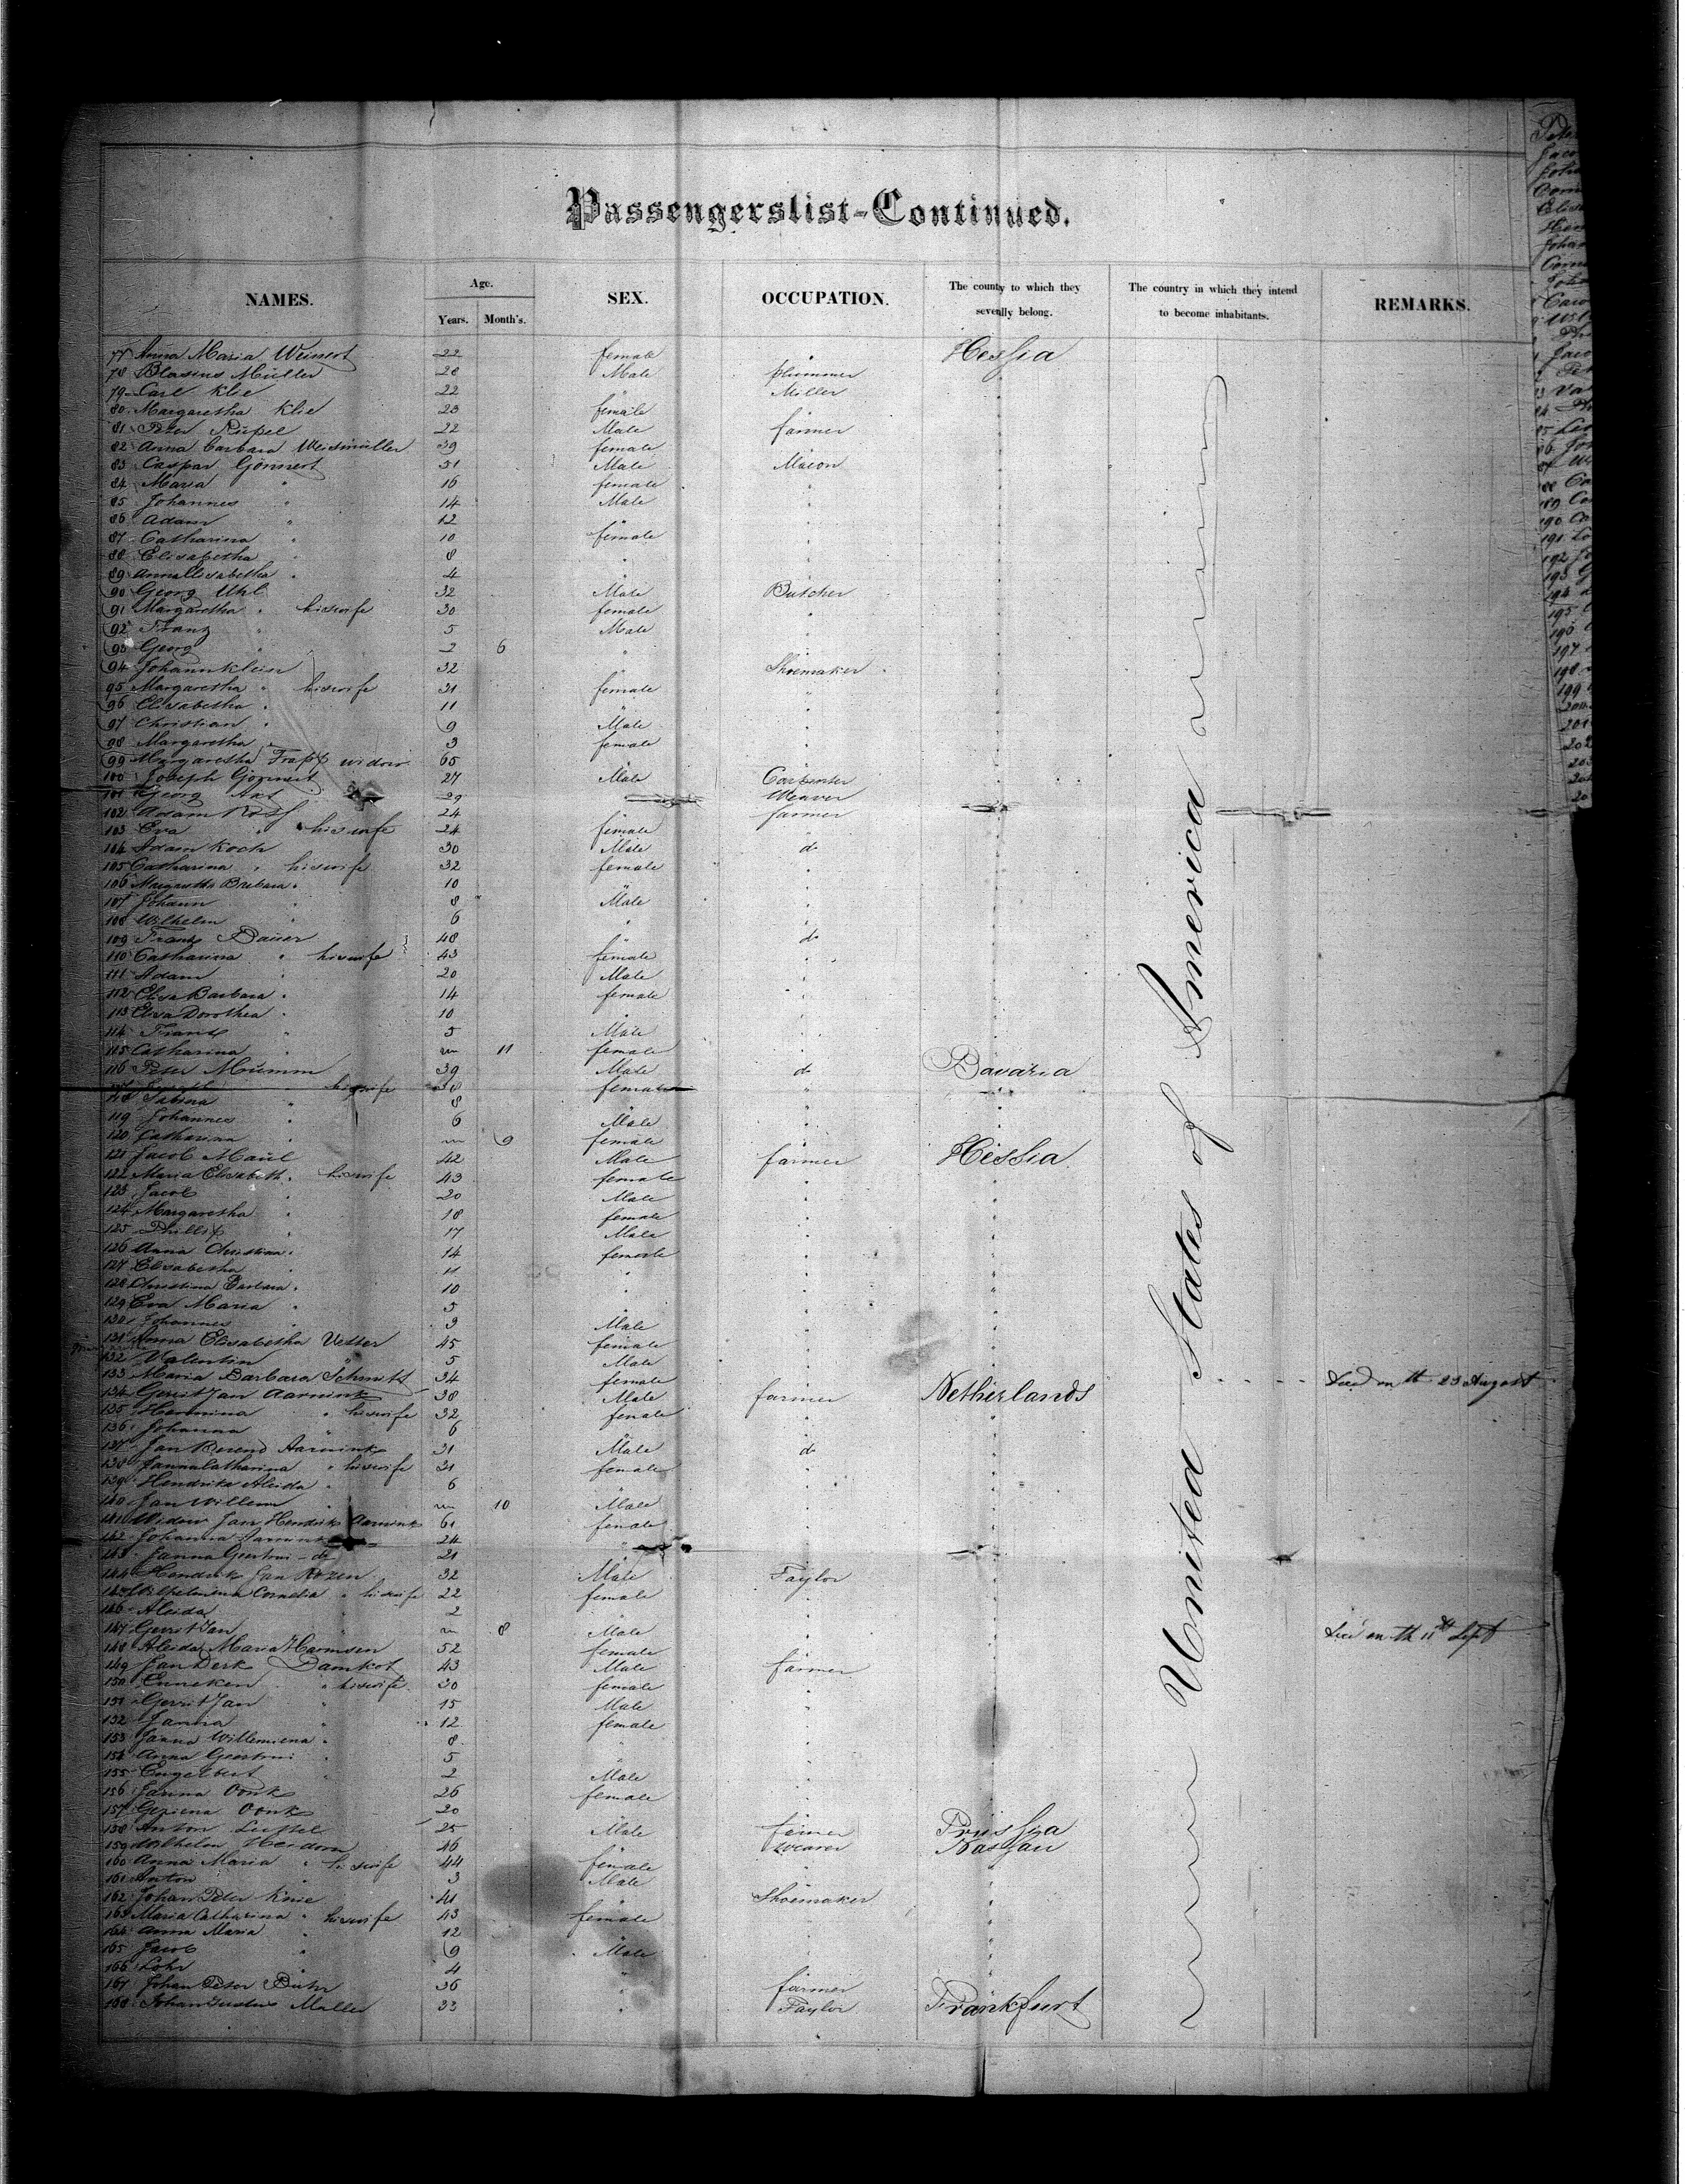 Passengerslist-Continued.
NAMES. Age. Years. Month's. SEX. OCCUPATION. The county to which they sevenlly belong. The country in which they intend to become inhabitants. REMARKS.
77 Anna Maria Weinert 22 female Hessia
78 Blasius Müller 28 Male plummer
79 Carl Klie 22 " Miller
80 Margaretha Klie 23 female
81 Peter 22 Male farmer
82 Anna Barbara Weismüller 39 female
83 Caspar Gönnert 51 Male Mason
84 Maria " 16 female
85 Johannes " 14 Male
86 Adam " 12 "
87 Catharina " 10 female
88 Elisabetha " 8 "
89 Anna Elisabetha " 4 "
90 Georg Uhl 32 Male Butcher
91 Margaretha " his wife 30 female
92 Franz " 5 Male
93 Georg " 2 6 "
94 Johann Klein 32 " Shoemaker
95 Margaretha " his wife 31 female
96 Elisabetha " 11 "
97 Christian " 9 Male
98 Margaretha " 3 female
99 Margaretha Trapp widow 65 "
100 Joseph Gönnert 27 Male Carpenter
101 Georg Axt 29 Weaver
102 Adam Roth 24 farmer
103 Eva " his wife 24 female
104 Adam Koch 30 Male do
105 Catharina " his wife 32 female
106 Margaretha Barbara " 10 "
107 Johann " 8 Male
108 Wilhelm " 6 "
109 Franz Bauer 48 " do
110 Catharina " his wife 43 female
111 Adam " 20 Male
112 Elisa Barbara " 14 female
113 Elisa Dorothea " 10 "
114 Franz " 5 Male
115 Catharina " 11 female
116 Peter Mumm 39 Male do Bavaria
117 his wife 38 female
118 Sabina " 8
119 Johannes " 6 Male
120 Catharina " 9 female
121 Jacob Maul 42 Male farmer Hessia
122 Maria Elisabeth " his wife 43 female
123 Jacob " 20 Male
124 Margaretha " 18 female
125 Phillip " 17 Male
126 Anna Christina " 14 female
127 Elisabetha " 11 "
128 Christina Barbara " 10 "
129 Eva Maria " 5 "
130 Johannes " 3 Male
131 Anna Elisabetha Vetter 45 female
132 Valentin 5 Male
133 Maria Barbara Schmitt 34 female died on th 23 August
134 Gerrit Jan Aarnink 38 Male farmer Netherlands
135 Hermina " his wife 32 female
136 Johanna 6
137 Jan Berend Aarnink 31 Male do
138 Janna Catharina " his wife 31 female
139 Hendrika Aleida " 6
140 Jan Willem " 10 Male
141 Widow Jan Hendrik Aarnink 61 female
142 Johanna Aarnink 24 "
143 Janna Geertrui - do 21
144 Hendrik Jan Rozen 32 Male Taylor
145 Wilhelmina Cornelia " his wife 22 female
146 Aleida " 2
147 Gerrit Jan " 8 Male died on th 11th Sept
148 Aleida Maria Harmsen 52 female
149 Jan Derk Damkot 43 Male farmer
150 Enneken " his wife 30 female
151 Gerrit Jan " 15 Male
152 Janna " 12 female
153 Janna Willemiena " 8 "
154 Anna Geertrui " 5 "
155 Engelbert " 2 Male
156 Janna Oonk 26 female
157 Geziena Oonk 20 "
158 Anton 25 Male farmer Prussia
159 Wilhelm Heidorn 46 " Weaver Nassau
160 Anna Maria " his wife 44 female
161 Anton " 3 Male
162 Johan Peter Knie 41 " Shoemaker
163 Maria Catharina " his wife 43 female
164 Anna Maria " 12
165 Jacob " 9 Male
166 " 4
167 Johan Peter 36 " farmer
168 Johan Gustav Muller 33 " Taylor Frankfurt
United States of America